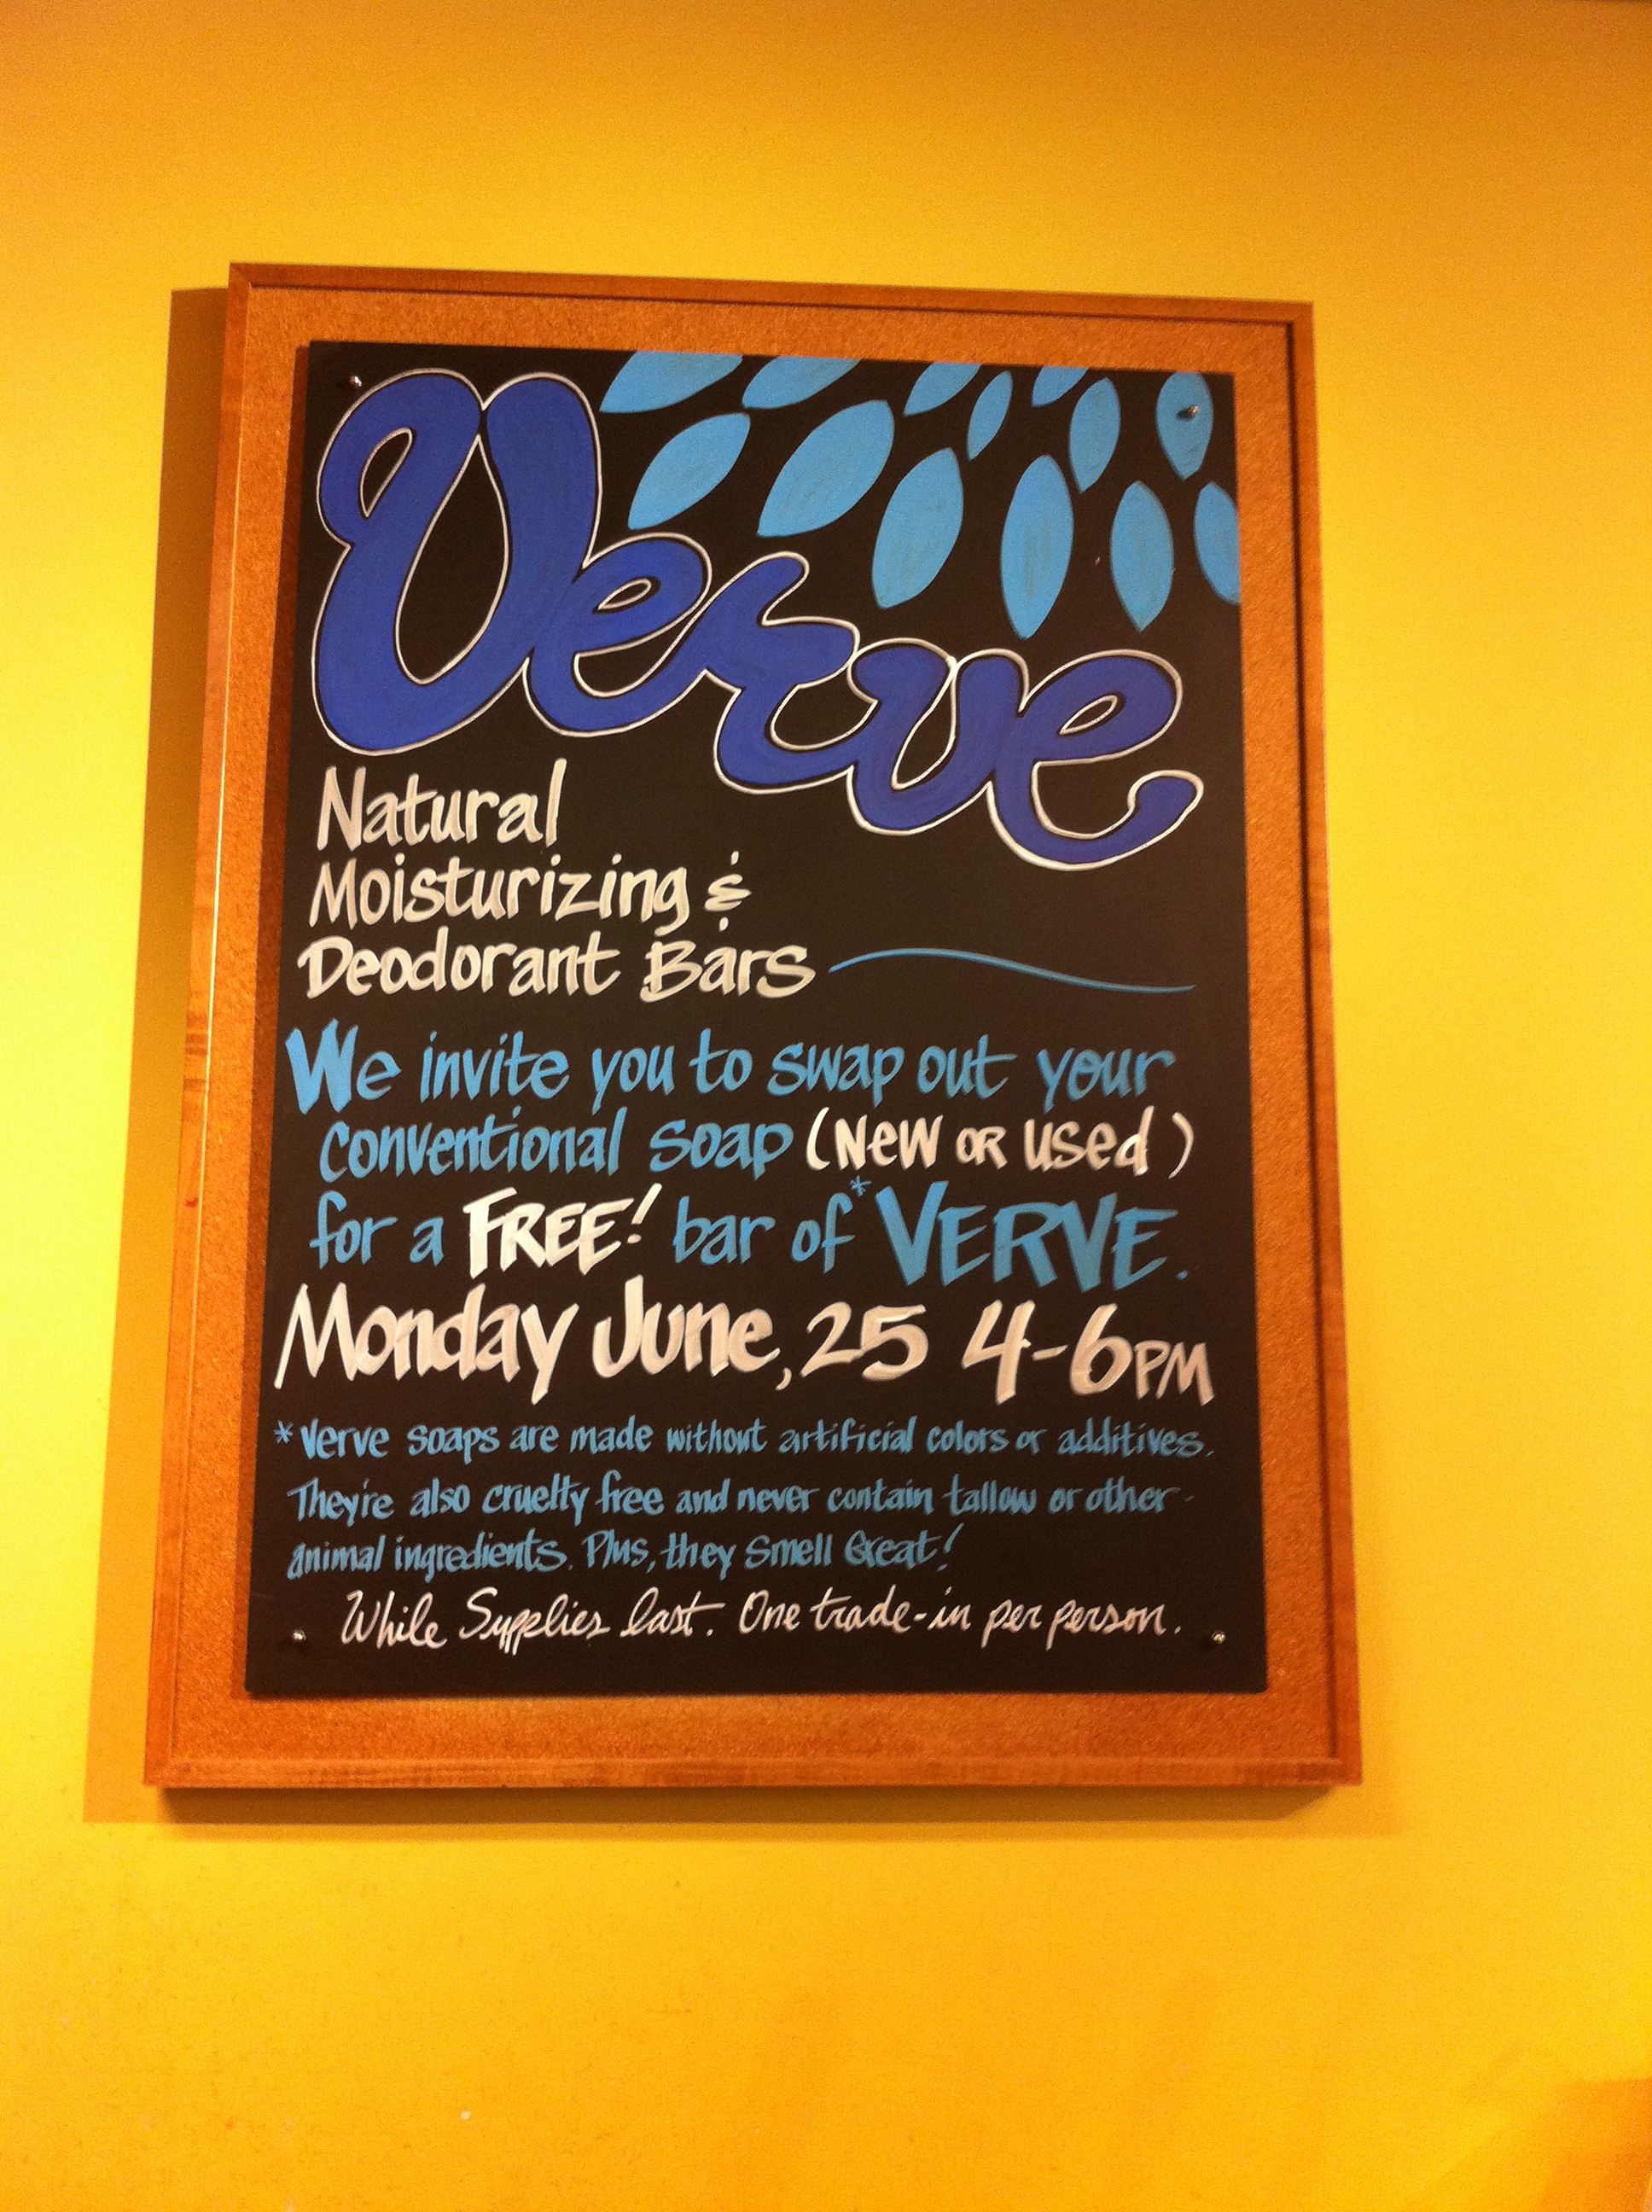 Verve
Natural
Moisturizing &
Deodorant Bars
We invite you to swap out your
Conventional Soap (New or used)
for a FREE! bar of *VERVE.
Monday June, 25 4-6PM
*Verve soaps are made without artificial colors or additives.
They're also cruelty free and never contain tallow or other
animal ingredients. Plus, they Smell Great!
While Supplies last. One trade-in per person.